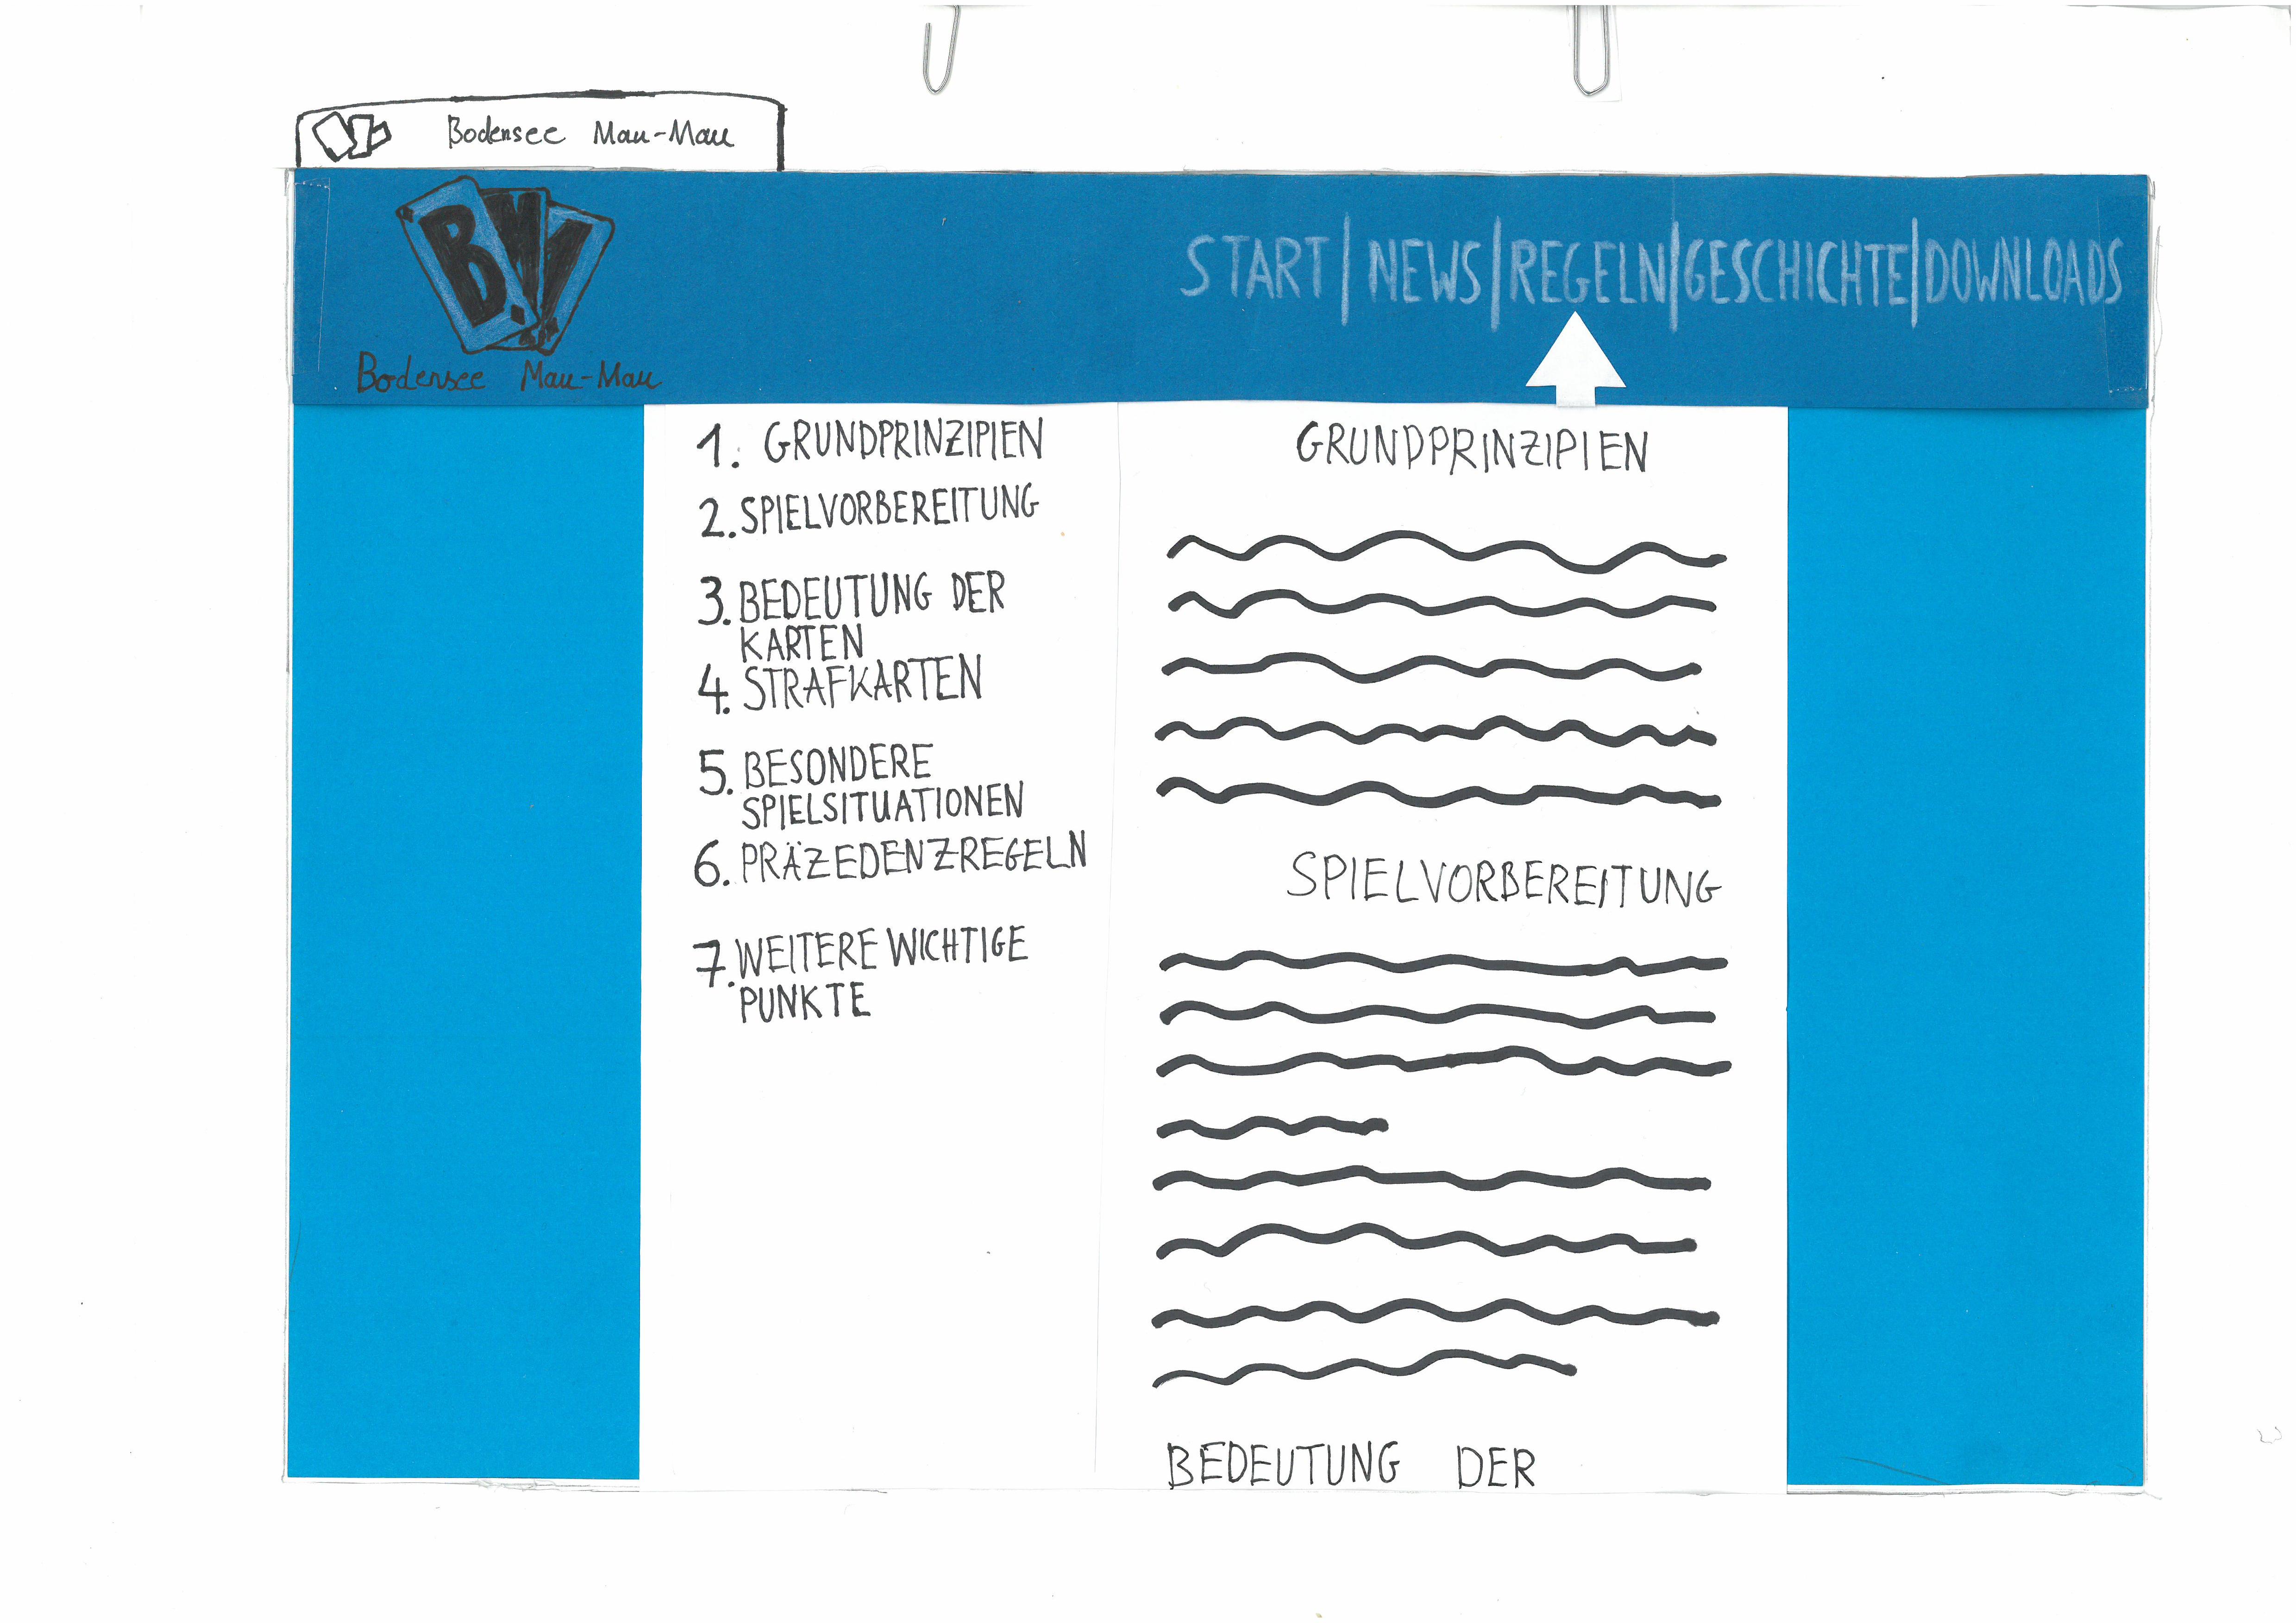 Bodensee Mau-Mau
B.
Bodensee Mau-Mau
START | NEWS | REGELN | GESCHICHTE | DOWNLOADS
1. GRUNDPRINZIPIEN
2. SPIELVORBEREITUNG
3. BEDEUTUNG DER
KARTEN
4. STRAFKARTEN
5. BESONDERE
SPIELSITUATIONEN
6. PRÄZEDENZREGELN
7. WEITERE WICHTIGE
PUNKTE
GRUNDPRINZIPIEN
SPIELVORBEREITUNG
BEDEUTUNG DER